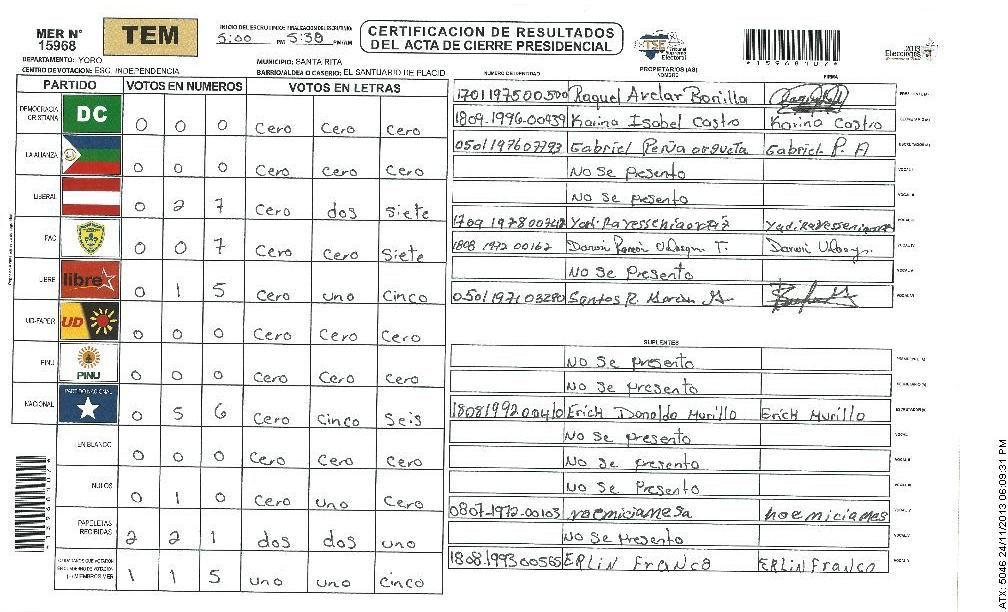 MER N° 15968
TEM
INICIO DEL ESCRUTINIO: FINALIZACION DEL ESCRUTINIO
5:00 PM 5:30 PM/AM
CERTIFICACION DE RESULTADOS
DEL ACTA DE CIERRE PRESIDENCIAL
TSE Tribunal Supremo Electoral
Elecciones 2013
DEPARTAMENTO: YORO
MUNICIPIO: SANTA RITA
CENTRO DE VOTACION: ESC. INDEPENDENCIA
BARRIO/ALDEA O CASERIO: EL SANTUARIO DE FLACID
PARTIDO VOTOS EN NUMEROS VOTOS EN LETRAS
DEMOCRACIA CRISTIANA DC 0 0 0 Cero Cero Cero
LA ALIANZA 0 0 0 Cero Cero Cero
LIBERAL 0 2 7 Cero dos Siete
PAC 0 0 7 Cero Cero Siete
LIBRE libre 0 1 5 Cero uno Cinco
UD-FAPER UD 0 0 0 Cero Cero Cero
PINU PINU 0 0 0 Cero Cero Cero
NACIONAL PARTIDO NACIONAL 0 5 6 Cero Cinco Seis
EN BLANCO 0 0 0 Cero Cero Cero
NULOS 0 1 0 Cero uno Cero
PAPELETAS RECIBIDAS 2 2 1 dos dos uno
1 1 5 uno uno Cinco
NUMERO DE IDENTIDAD PROPIETARIOS (AS) NOMBRE FIRMA
1701197500500 Raquel Avelar Bonilla
1809-1996-00939 Karina Isabel Castro Karina Castro
0501197607793 Gabriel Peña argueta Gabriel P. A
No Se Presento
No Se presento
1709 197800742
1808 1972 00162 Darwin Ramon T. Darwin
No Se Presento
0501197103280 Santos R.
SUPLENTES
No Se presento
No Se presento
1808199200410 Erick Donaldo Murillo Erick Murillo
No Se presento
No Se presento
No Se Presento
0807-1972-00103 noemiciamesa noemiciames
No Se Presento
1808.199300565 ERLin Franco ERLin Franco
ATX: 5046 24/11/2013 06:09:31 PM